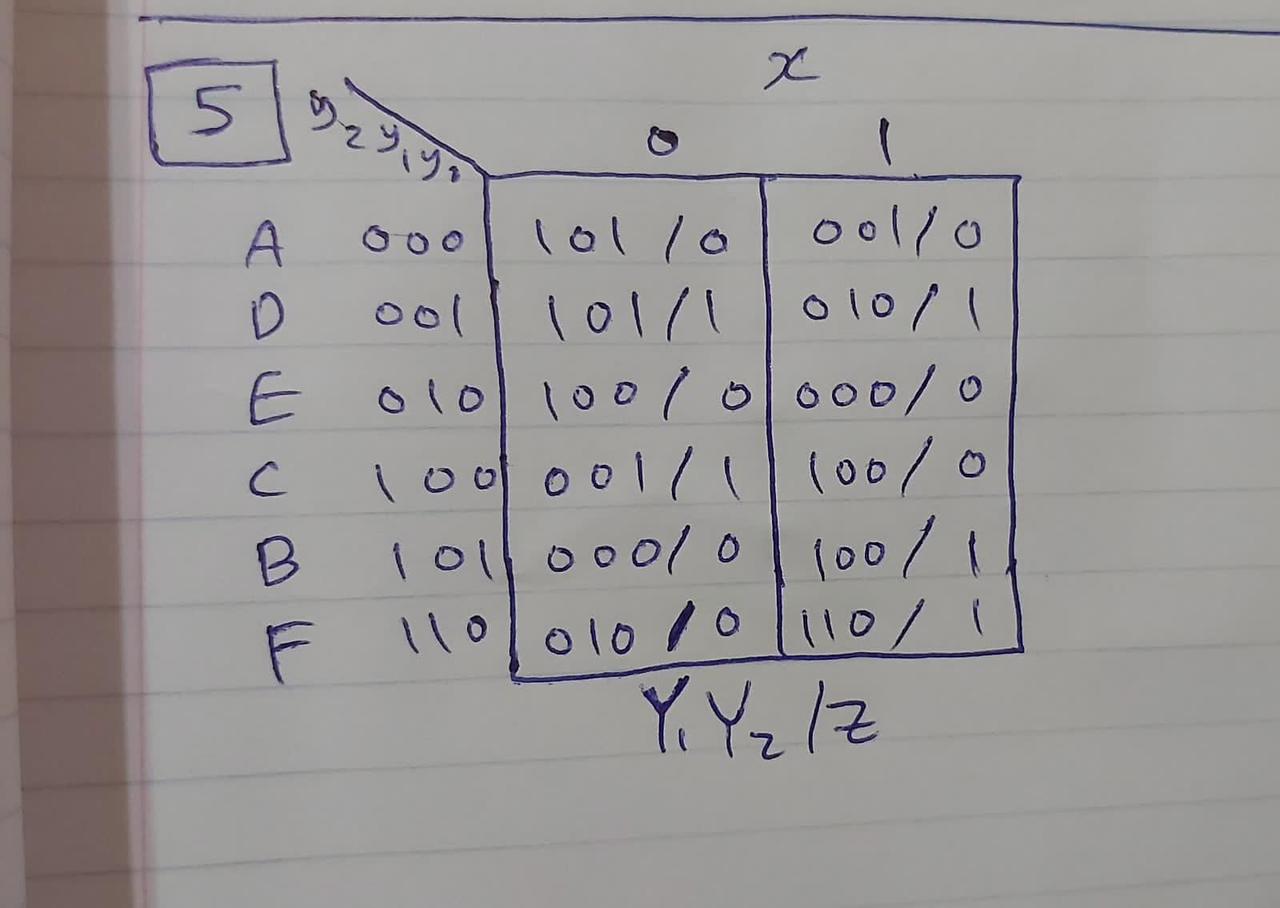 x
5 y₂y₁y₀ 0 1
A 000 101/0 001/0
D 001 101/1 010/1
E 010 100/0 000/0
C 100 001/1 100/0
B 101 000/0 100/1
F 110 010/0 110/1
Y₁Y₂/z